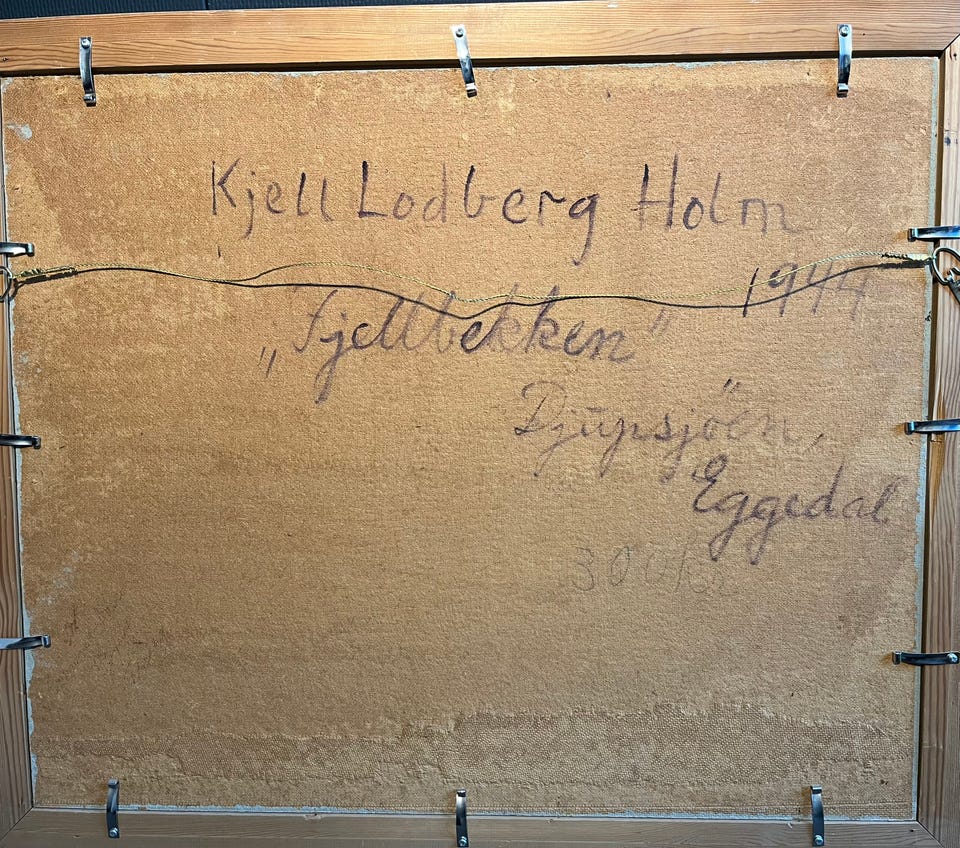 Kjell Lodberg Holm
1944
„Fjellbekken"
Djupsjöen,
Eggedal
300 kr